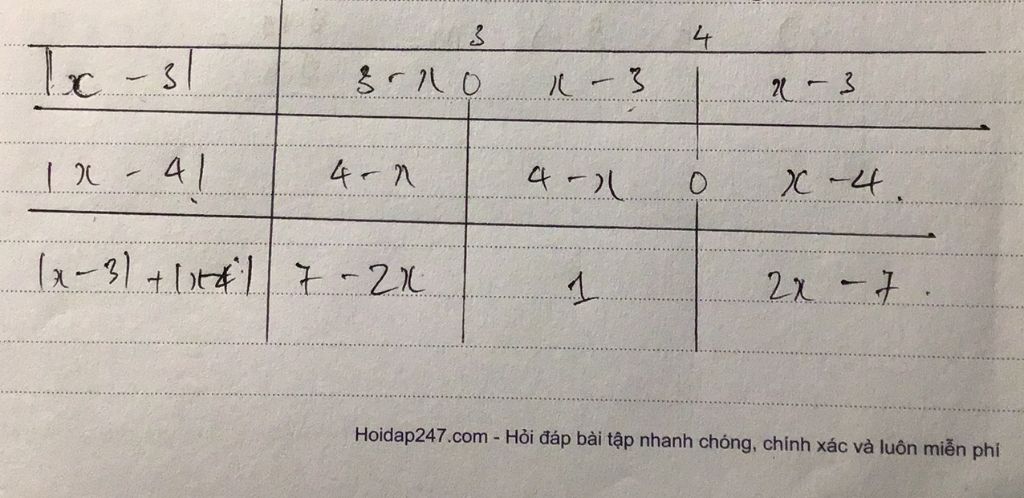 3 4
|x - 3| 3 - x 0 x - 3 x - 3
|x - 4| 4 - x 4 - x 0 x - 4
|x - 3| + |x - 4| 7 - 2x 1 2x - 7
Hoidap247.com - Hỏi đáp bài tập nhanh chóng, chính xác và luôn miễn phí